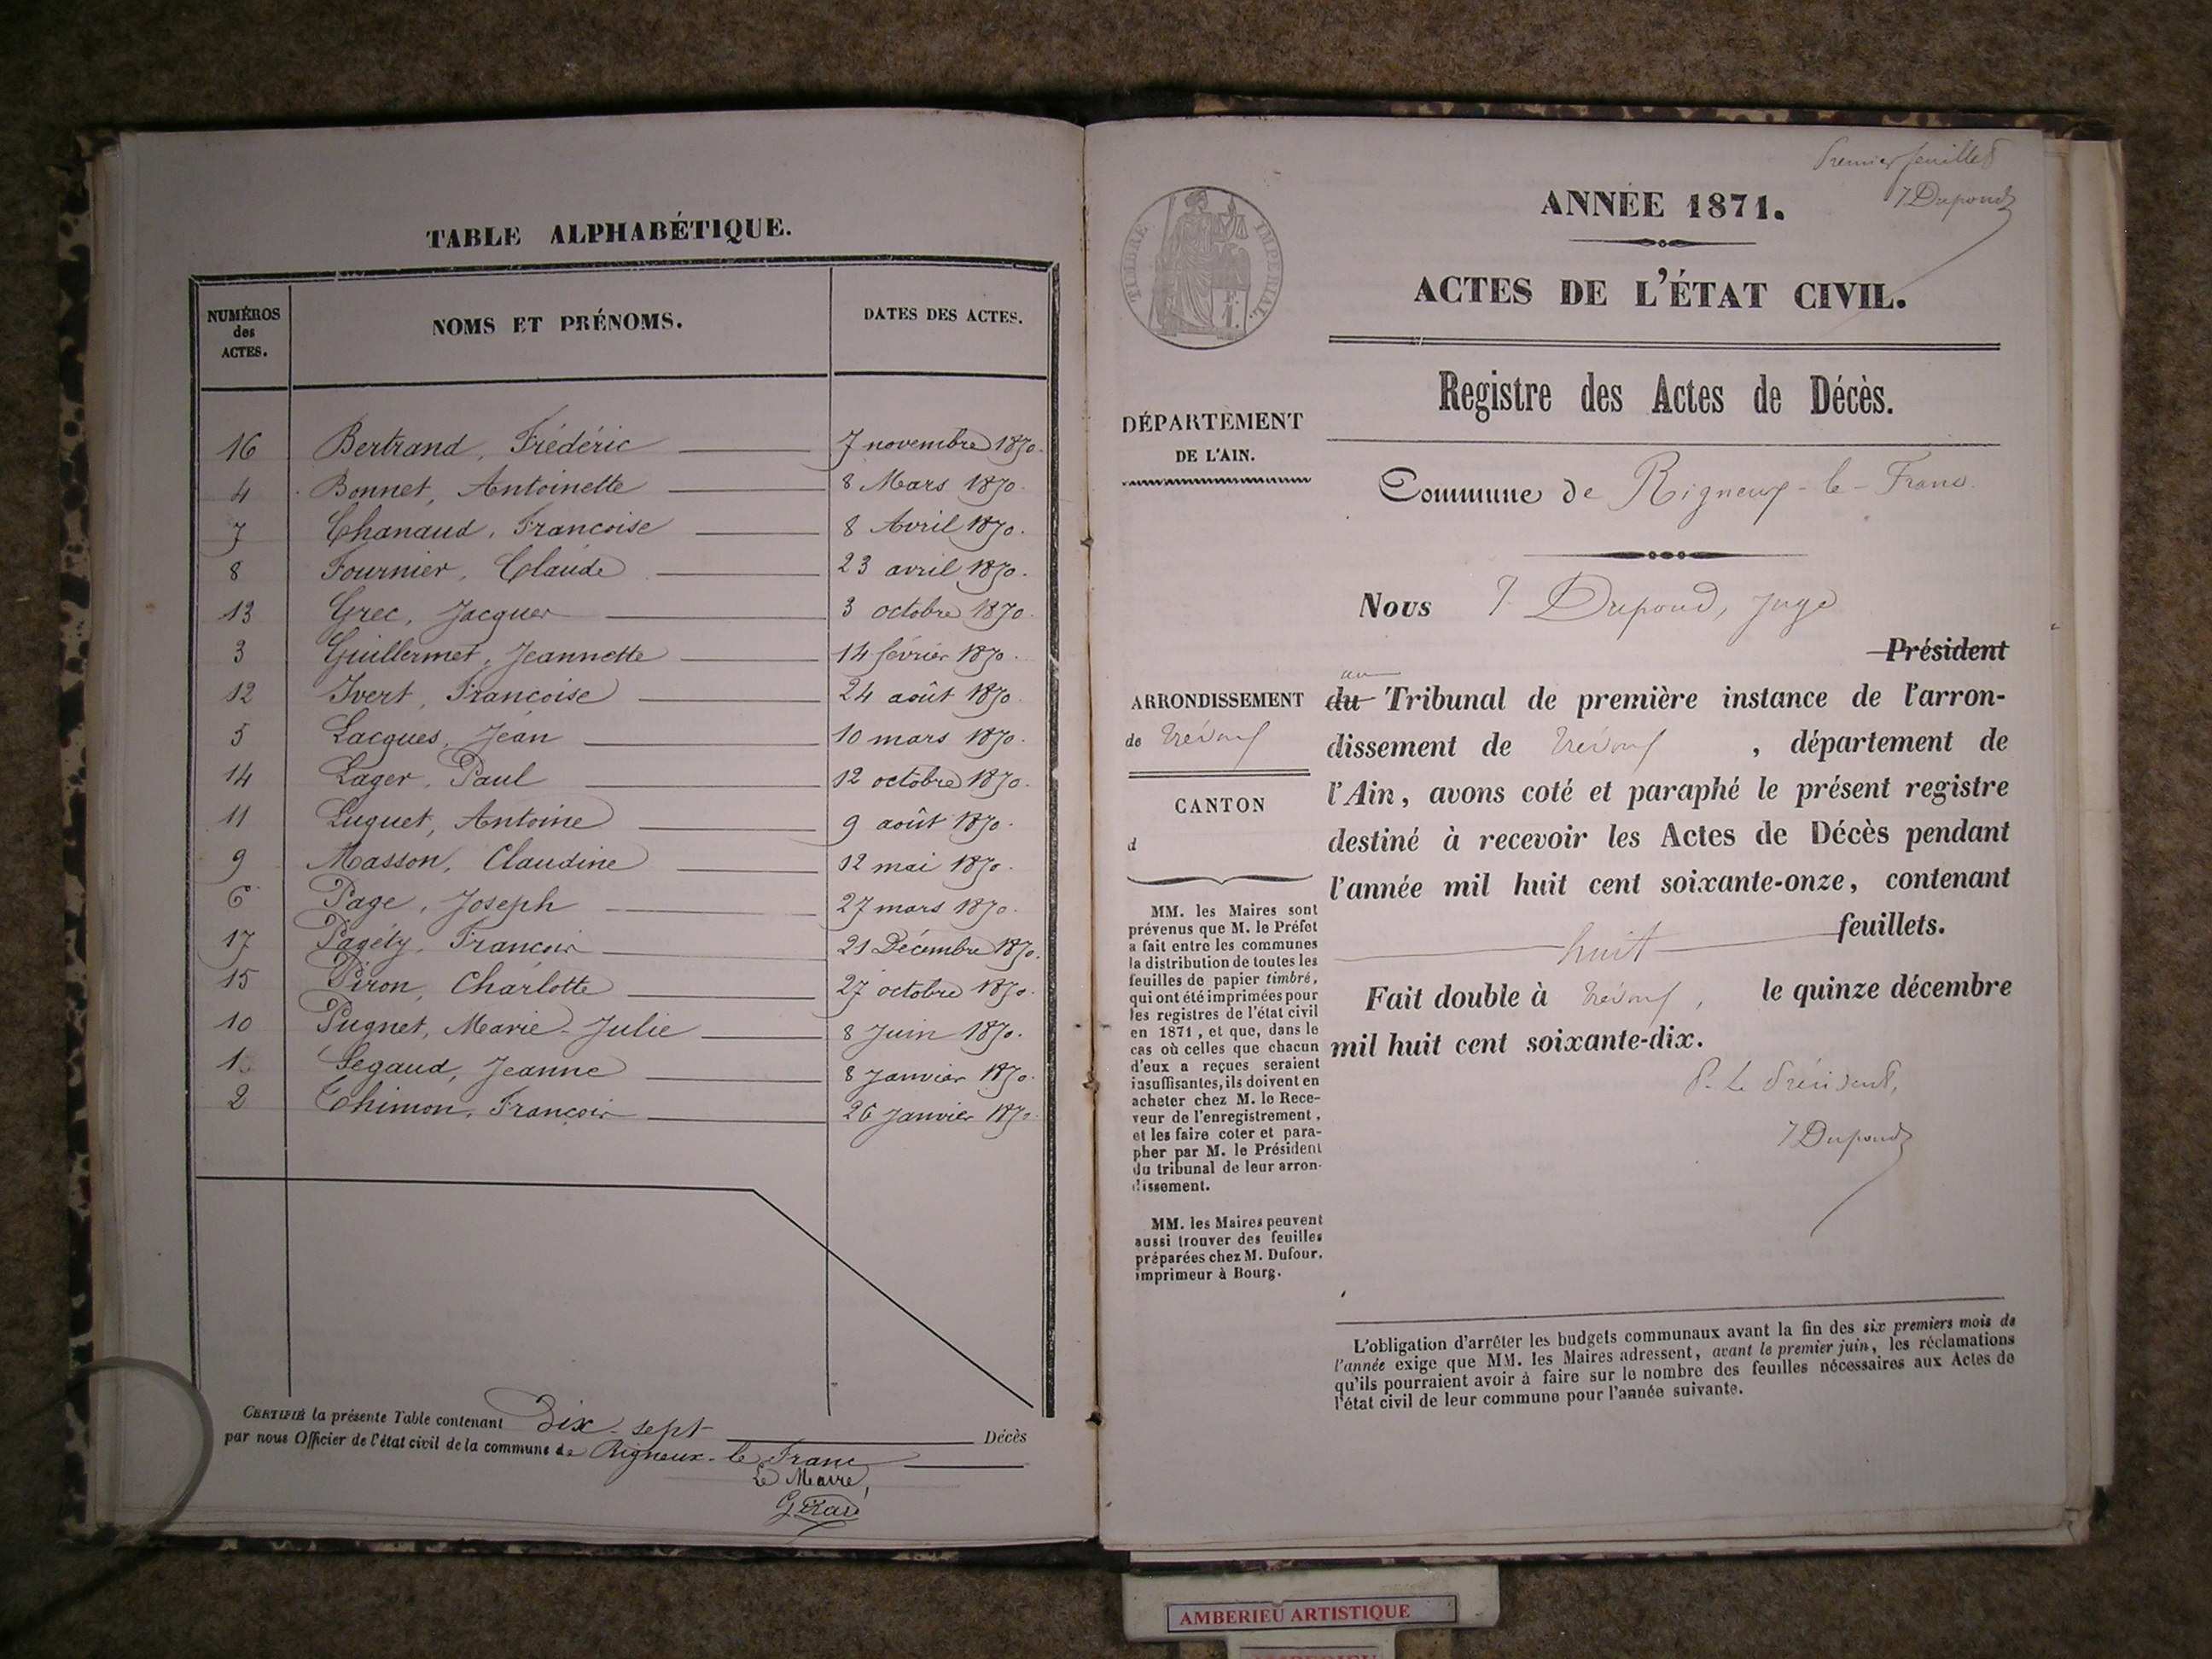 TABLE ALPHABÉTIQUE.
NUMÉROS des ACTES.
NOMS ET PRÉNOMS.
DATES DES ACTES.
16 Bertrand, Frédéric 7 novembre 1870.
4 Bonnet, Antoinette 8 Mars 1870.
7 Chanaud, Francoise 8 Avril 1870.
8 Fournier, Claude 23 avril 1870.
13 Grec, Jacques 3 octobre 1870.
3 Guillermet, Jeannette 14 février 1870.
12 Ivert, Francoise 24 août 1870.
5 Lacques, Jean 10 mars 1870.
14 Lager, Paul 12 octobre 1870.
11 Luguet, Antoine 9 août 1870.
9 Masson, Claudine 12 mai 1870.
6 Page, Joseph 27 mars 1870.
17 Pagéty, Francois 21 Décembre 1870.
15 Piron, Charlotte 27 octobre 1870.
10 Pugnet, Marie-Julie 8 Juin 1870.
1 Segaud, Jeanne 8 Janvier 1870.
2 Thimon, François 26 Janvier 1870.
CERTIFIÉ la présente Table contenant Dix-sept Décès
par nous Officier de l'état civil de la commune de Rigneux-le Franc
Le Maire,
Premier feuillet
J Dupond
ANNÉE 1871.
ACTES DE L'ÉTAT CIVIL.
TIMBRE IMPÉRIAL
Registre des Actes de Décès.
DÉPARTEMENT
DE L'AIN.
Commune de Rigneux-le-Franc
Nous J Dupond, juge
Président
au
du Tribunal de première instance de l'arron-
dissement de Trévoux, département de
l'Ain, avons coté et paraphé le présent registre
destiné à recevoir les Actes de Décès pendant
l'année mil huit cent soixante-onze, contenant
huit feuillets.
Fait double à Trévoux, le quinze décembre
mil huit cent soixante-dix.
P. Le Président,
J Dupond
ARRONDISSEMENT
de Trévoux
CANTON
d
MM. les Maires sont
prévenus que M. le Préfet
a fait entre les communes
la distribution de toutes les
feuilles de papier timbré,
qui ont été imprimées pour
les registres de l'état civil
en 1871, et que, dans le
cas où celles que chacun
d'eux a reçues seraient
insuffisantes, ils doivent en
acheter chez M. le Rece-
veur de l'enregistrement,
et les faire coter et para-
pher par M. le Président
du tribunal de leur arron-
dissement.
MM. les Maires peuvent
aussi trouver des feuilles
préparées chez M. Dufour,
imprimeur à Bourg.
L'obligation d'arrêter les budgets communaux avant la fin des six premiers mois de
l'année exige que MM. les Maires adressent, avant le premier juin, les réclamations
qu'ils pourraient avoir à faire sur le nombre des feuilles nécessaires aux Actes de
l'état civil de leur commune pour l'année suivante.
AMBERIEU ARTISTIQUE
AMBERIEU